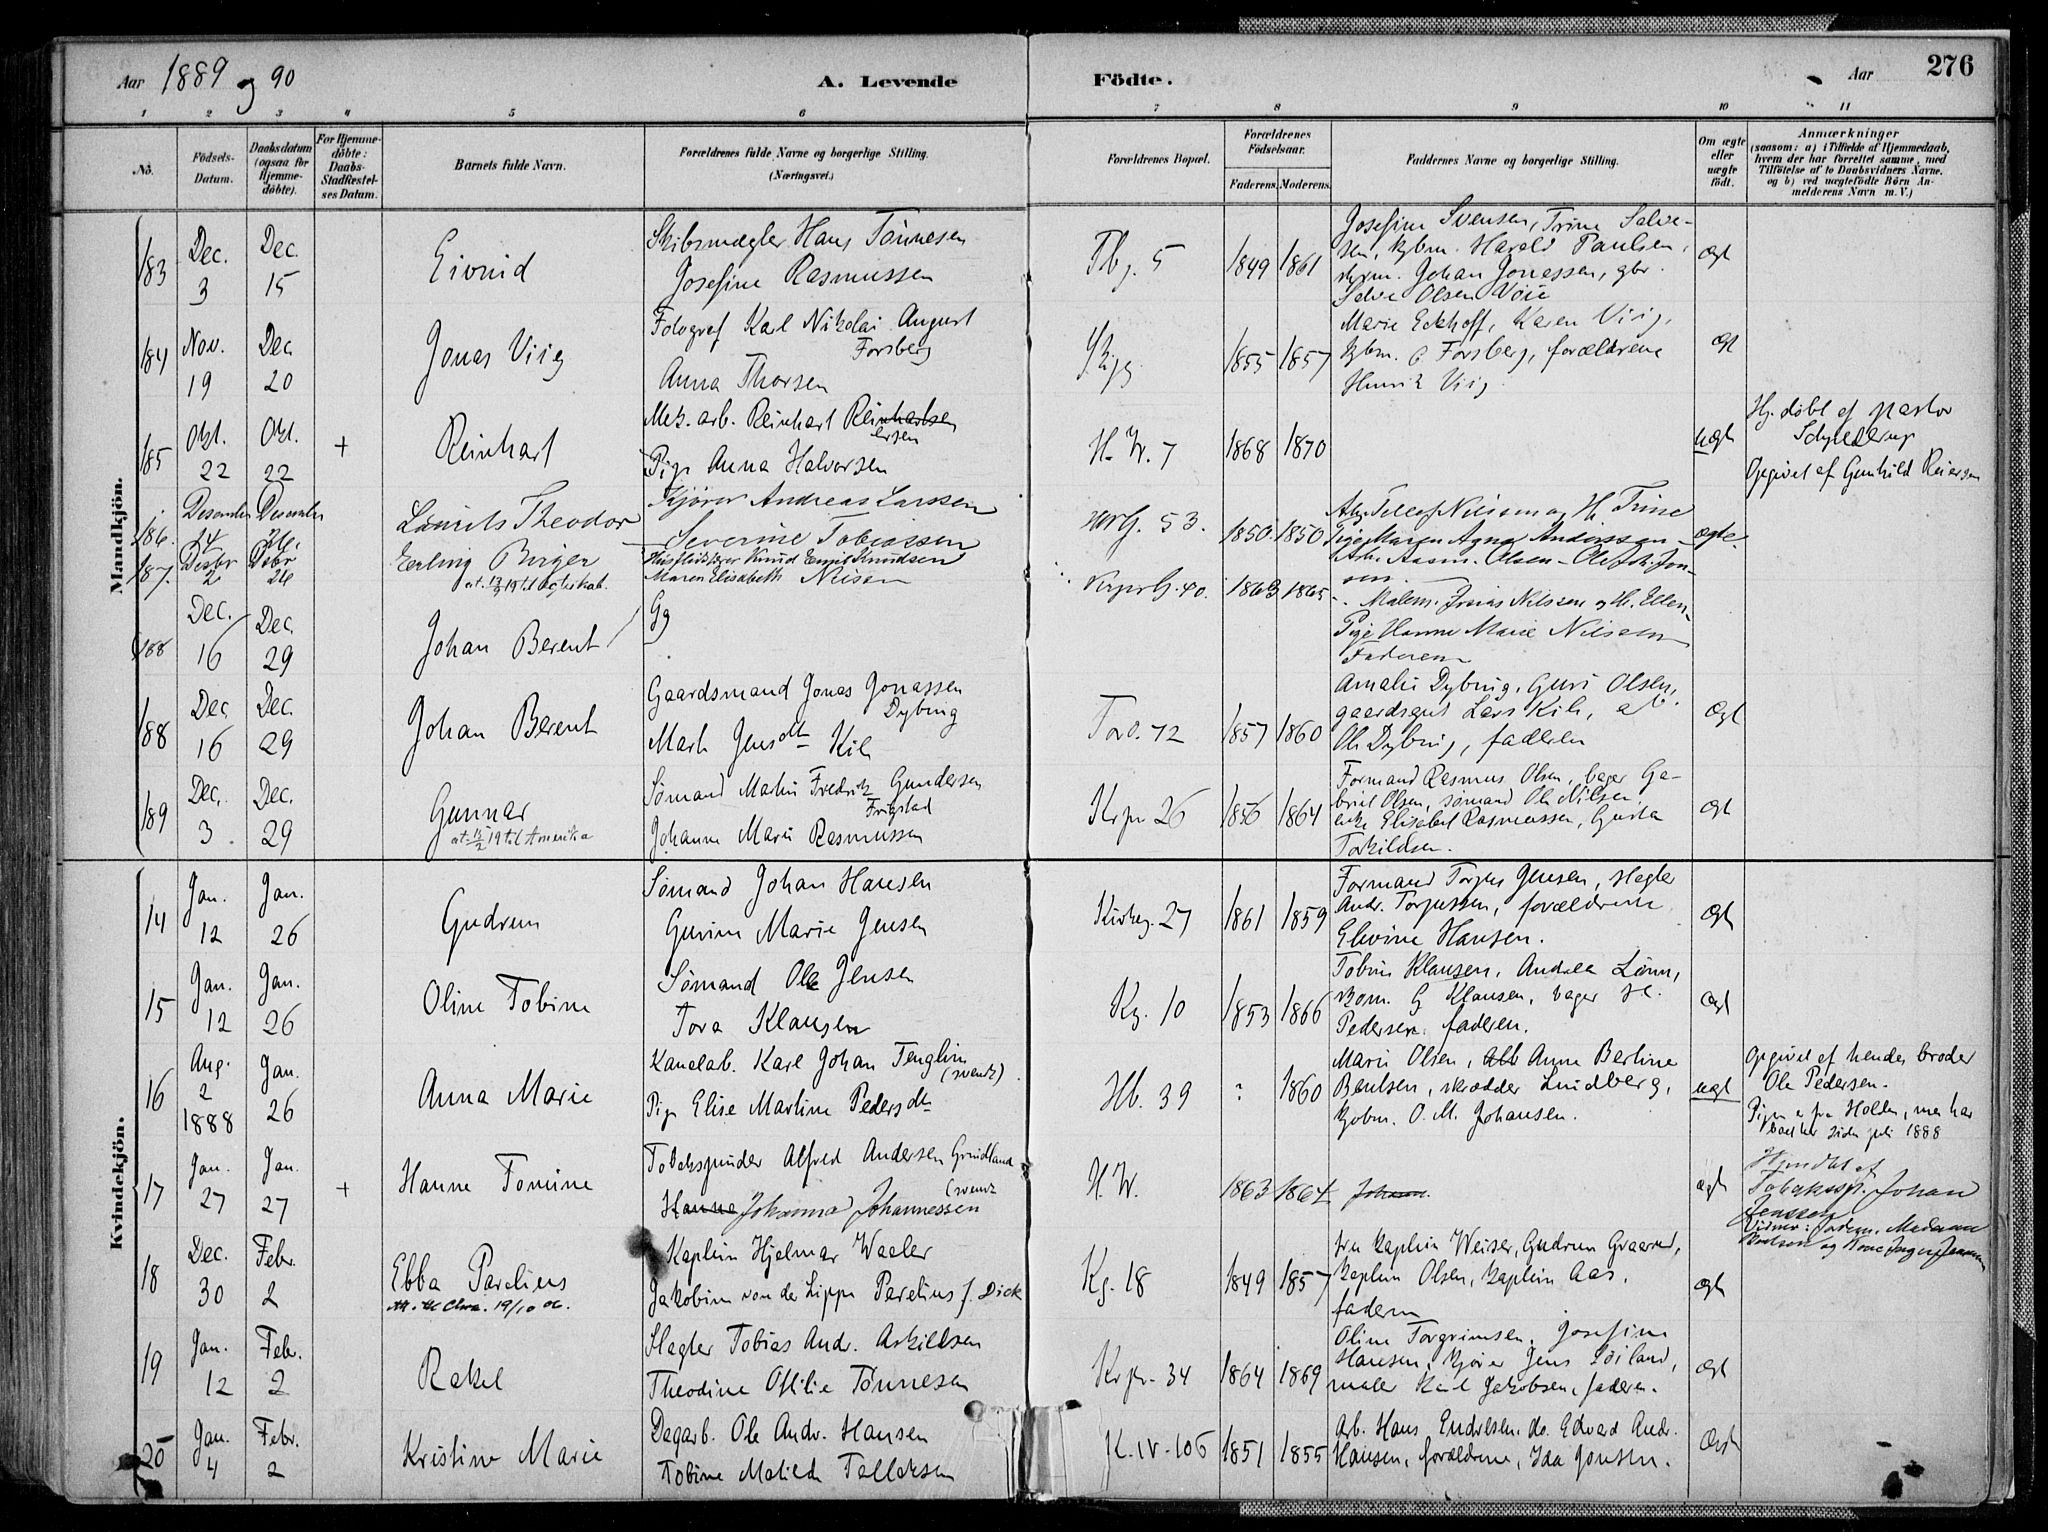 Aar 1889 og 90 A. Levende Födte. Aar 276
1 2 3 4 5 6 7 8 9 10 11
No.
Födsels-Datum.
Daabsdatum (ogsaa for Hjemmedöbte).
For Hjemmedöbte: Daabs-Stadfæstelses Datum.
Barnets fulde Navn.
Forældrenes fulde Navne og borgerlige Stilling.
(Næringsvei.)
Forældrenes Bopæl.
Forældrenes Födselsaar.
Faderens. Moderens.
Faddernes Navne og borgerlige Stilling.
Om ægte eller uægte födt.
Anmærkninger
(saasom: a) i Tilfælde af Hjemmedaab,
hvem der har forrettet samme, med
Tilföielse af to Daabsvidners Navne,
og b) ved uægtefödte Börn An-
melderens Navn m. V.)
Mandkjön.
183 Dec. 3 Dec. 15 Eivind
Skibsmægler Hans Tönnesen
Josefine Rasmussen
Tbg. 5 1849 1861
Josefine Svensen, Trine Salve-
sen, kjbm. Harald Paulsen,
Johan Jonassen, gbr.
Salve Olsen Vöie
Ægt
184 Nov. 19 Dec 20 Jonas Viig
Fotograf Karl Nikolai August
Forsberg
Anna Thorsen
1855 1857
Marie Eckhoff, Karen Viig,
kjbm. Forsberg, forældrene
Henrik Viig.
Ægt
185 Okt. 22 Okt. 22 + Reinhart
Mek. arb. Reinhart
Pige Anna Halvorsen
H. W. 7 1868 1870
uægt
Hj. döbt af pastor
Schjelderup
Opgivet af Gunhild Reiersen
186. Desember 24 Desember 26. Laurits Theodor
Kjörer Andreas Larssen
Severine Tobiassen
53. 1850 1850
Arb. Tellef Nilssen og H. Trine
Pige Maren Agnes Anderssen
Olsen
Ægte.
187. Desbr 2 Desbr 26 Erling Birger
Knud Emil Knudsen
Maren Elisabeth Nilsen
40. 1863 1865
Malerm. Jonas Nilssen og H. Ellen
Pige Hanne Marie Nilssen
Faderen
188 Dec. 16 Dec. 29 Johan Berent
Gg
188 Dec 16 Dec. 29 Johan Berent
Gaardsmand Jonas Jonassen
Dybing
Jensdtr Kile
72 1857 1860
Amalie Dybing, Guri Olsen,
gaardsgut Lars Kile, arb.
Ole Dybing, faderen
Ægt
189 Dec. 3 Dec. 29 Gunnar
at. 15/2 19 til Amerika
Sömand Martin Fredrik Gundersen
Frigstad
Johanne Marie Rasmussen
Krpr 26 1856 1864
Formand Rasmus Olsen, bager Ga-
briel Olsen, sömand Ole Nilsen,
enke Elisabet Rasmussen, Gusta
Torkildsen.
Ægt
Kvindekjön.
14 Jan. 12 Jan. 26 Gudrun
Sömand Johan Hansen
Gurine Marie Jensen
Kirkeg. 27 1861 1859
Formand Torjus Jensen, slagter
Andr. Torjussen, forældrene
Elevine Hansen.
Ægt
15 Jan. 12 Jan. 26 Oline Tobine
Sömand Ole Jensen
Tora Klausen
Kg. 10 1853 1866
Tobine Klausen, Andrea Lönn,
G Klausen, bager
Pedersen, faderen.
Ægt
16 Aug. 2 1888 Jan. 26 Anna Marie
Kanalarb. Karl Johan Tenglin
(svensk)
Pige Elise Martine Pedersdtr
Hb. 39 ? 1860
Marie Olsen, Anne Bertine
Bentsen, skrædder Lindberg,
kjbm. O. M. Johansen.
uægt
Opgivet af hendes broder
Ole Pedersen.
Pigen er fra Holden, men har
boet her siden juli 1888
17 Jan. 27 Jan. 27 + Hanne Tomine
Tobakspinder Alfred Andersen Grindland
(svensk
Hanne Johanna Johannessen
H. W. 1863 1864
Ægt
Hjemdöbt af
Tobakssp. Johan
Jenssen
18 Dec. 30 Febr. 2 Ebba Parelius
Att. til Chra. 19/10 06.
Kaptein Hjelmar Waaler
Jakobine von der Lippe Parelius f. Dick
Kg. 18 1849 1857
fru kaptein Weiser, Gudrun Graarud,
kaptein Olsen, kaptein Aas,
faderen
Ægt
19 Jan. 12 Febr. 2 Rakel
Slagter Tobias Andr. Askildsen
Theodine Otilie Tönnesen
Krpr. 34 1864 1869
Oline Torgrimsen, Josefine
Hansen, kjörer Jens Löiland,
maler Karl Jakobsen, faderen.
Ægt
20 Jan. 4 Febr. 2 Kristine Marie
Dagarb. Ole Andr. Hansen
Tobine Matilde Tellefsen
K. IV - 106 1851 1855
Arb. Hans Endresen, do. Edvard Andr.
Hansen, forældrene, Ida Jonsen.
Ægt